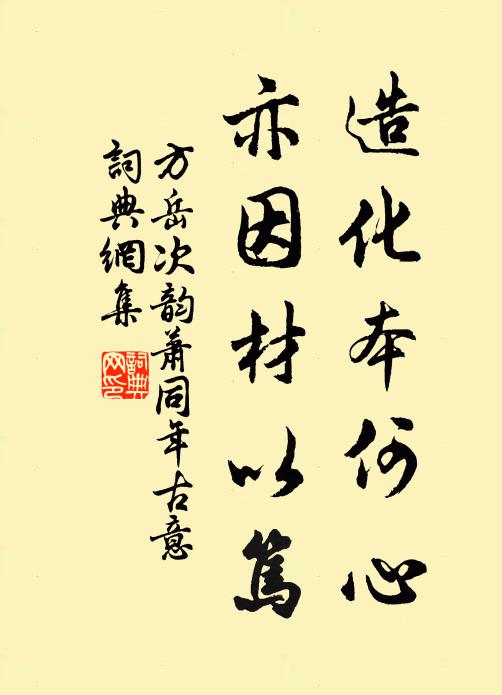 造化本何心
亦因材以篤
方岳次韵蕭同年古意
詞典網集
詞典
网印